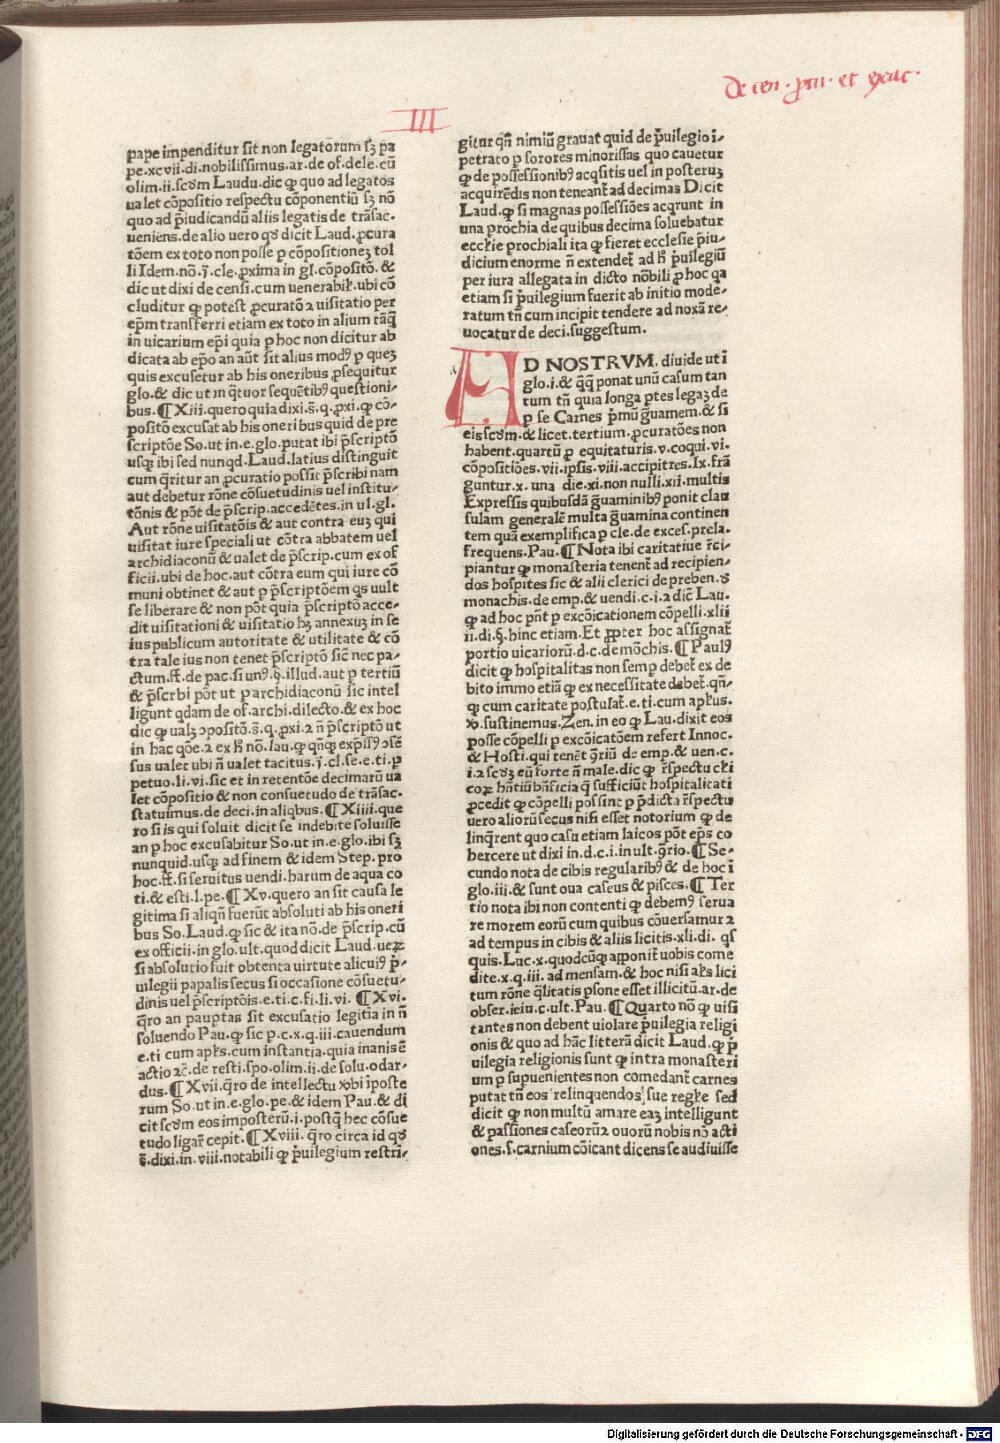 De cen. ꝑcu. et ꝓcuc.
III
pape impenditur sit non legatorum sꝫ pa
pe.xcvii.di.nobilissimus.ar.de of.dele.cū
olim.ii.scdm Laudu.dic ꝙ quo ad legatos
ualet cōpositio respectu cōponentiū sꝫ nō
quo ad p̄iudicandū aliis legatis de trāsac.
ueniens.de alio uero qd dicit Laud.ꝓcura
tōem ex toto non posse ꝑ cōpositioneꝫ tol
li Idem.nō.j̄.cle.ꝓxima in gl.cōpositō.&
dic ut dixi de censi.cum uenerabił.ubi cō
cluditur ꝙ potest ꝓcuratō ꝛ uisitatio per
ep̄m transferri etiam ex toto in alium tāꝗ̄
in uicarium ep̄i quia ꝑ hoc non dicitur ab
dicata ab ep̄o an aūt sit alius modꝰ ꝑ queꝫ
quis excusetur ab his oneribus ꝓsequitur
glo.& dic ut in q̄tuor sequētibꝰ questioni⸗
bus.¶Xiii.quero quia dixi.s̄.q.ꝓxi.ꝙ cō⸗
positō excusat ab his oneribus quid de pre
scriptōe So.ut in.e.glo.putat ibi p̄scriptō
usqꝫ ibi sed nunqd.Laud.latius distinguit
cum q̄ritur an ꝓcuratio possit p̄scribi nam
aut debetur rōne cōsuetudinis uel institu⸗
tōnis & pōt de p̄scrip.accedētes.in ul.gl.
Aut rōne uisitatōis & aut contra euꝫ qui
uisitat iure speciali ut cōtra abbatem uel
archidiaconū & ualet de p̄scrip.cum ex of
ficii.ubi de hoc.aut cōtra eum qui iure cō
muni obtinet & aut ꝑ p̄scriptōem qs uult
se liberare & non pōt quia p̄scriptō acce⸗
dit uisitationi & uisitatio hꝫ annexuꝫ in se
ius publicum autoritate & utilitate & cō
tra tale ius non tenet p̄scriptō sic̄ nec pa⸗
ctum.ff.de pac.si unꝰ.§.illud.aut ꝑ tertiū
& p̄scrbi pōt ut ꝑ archidiaconū sic intel
ligunt qdam de of.archi.dilecto.& ex hoc
dic ꝙ ualꝫ ↄpositō.s̄.q.ꝓxi.ꝛ n̄ p̄scriptō ut
in hac qōe.ꝛ ex h̄ nō.lau.ꝙ qn̄qꝫ exp̄ssꝰ ↄsē
sus ualet ubi n̄ ualet tacitus.j̄.cl.se.e.ti.ꝑ
petuo.li.vi.sic et in retentōe decimarū ua
let cōpositio & non consuetudo de trāsac.
statuimus.de deci.in aliqbus.¶Xiiii.que
ro si is qui soluit dicit se indebite soluisse
an ꝑ hoc excusabitur So.ut in.e.glo.ibi sꝫ
nunquid.usqꝫ ad finem & idem Step.pro
hoc.ff.si seruitus uendi.harum de aqua co
ti.& esti.l.pe.¶Xv.quero an sit causa le
gitima si aliqn̄ fuerūt absoluti ab his oneri
bus So.Laud.ꝙ sic & ita nō.de p̄scrip.cū
ex officii.in glo.ult.quod dicit Laud.ueꝝ
si absolutio fuit obtenta uirtute alicuiꝰ p̄⸗
uilegii papalis secus si occasione cōsuetu⸗
dinis uel p̄scriptōis.e.ti.c.fi.li.vi.¶Xvi.
q̄ro an paupτas sit excusatio legitīa in n̄
soluendo Pau.ꝙ sic ꝑ c.x.q.iii.cauendum
e.ti cum apłs.cum instantia.quia inanis ē
actio ꝛc̄.de resti.spo.olim.ii.de solu.odar⸗
dus.¶Xvii.q̄ro de intellectu ꝟbi īposte
rum So.ut in.e.glo.pe.& idem Pau.& di
cit scdm eos imposterū.i.postq̄ hec cōsue
tudo ligar̄ cepit.¶Xviii.q̄ro circa id qd
s̄.dixi.in.viii.notabili ꝙ p̄uilegium restri⸗
gitur qn̄ nimiū grauat̄ quid de p̄uilegio i⸗
petrato ꝑ sorores minorissas quo cauetur
ꝙ de possessionibꝰ acqsitis uel in posteruꝫ
acquirēdis non teneant̄ ad decimas Dicit
Laud.ꝙ si magnas possessiōes acqrunt in
una prochia de quibus decima soluebatur
eccłie prochiali ita ꝙ fieret ecclesie p̄iu⸗
dicium enorme n̄ extendet̄ ad h̄ p̄uilegiū
per iura allegata in dicto nōbili ꝑ hoc qa
etiam si p̄uilegium fuerit ab initio mode⸗
ratum tn̄ cum incipit tendere ad noxā re⸗
uocatur de deci.suggestum.
AD NOSTRVM. diuide ut ī
glo.i.& q̄q̄ ponat unū casum tan
tum tn̄ quia longa ꝑtes legaꝫ de
ꝑ se Carnes p̄mū ḡuamem.& si
eis scdm.& licet.tertium.ꝓcuratōes non
habent.quartū ꝑ equitaturis.v.coqui.vi.
cōpositiōes.vii.ipsis.viii.accipitres.Ix.frā
guntur.x. una die.xi.non nulli.xii.multis
Expressis quibusdā ḡuaminibꝰ ponit clau
sulam generalē multa ḡuamina continen
tem quā exemplifica ꝑ cle.de exces.prela.
frequens.Pau.¶Nota ibi caritatiue r̄ci⸗
piantur ꝙ monasteria tenent̄ ad recipien⸗
dos hospites sic & alii clerici de preben.d
monachis.de emp.& uendi.c.i.ꝛ dic̄ Lau.
ꝙ ad hoc pn̄t ꝑ excōicationem cōpelli.xlii
ii.di.§.hinc etiam.Et ꝓpter hoc assignat̄
portio uicariorū.d.c.de mōchis.¶Paulꝰ
dicit ꝙ hospitalitas non semꝑ debet̄ ex de
bito immo etiā ꝙ ex necessitate debet̄.qn̄⸗
ꝙ cum caritate postulat̄.e.ti.cum apłus.
ꝟ.sustinemus.Zen.in eo ꝙ Lau.dixit eos
posse cōpelli ꝑ excōicatōem refert Innoc.
& Hosti.qui tenet̄ ꝯriū de emp.& uen.c.
i.ꝛ scdꝫ eū forte n̄ male.dic ꝙ r̄spectu cłi
coꝝ hn̄tiū bn̄ficia q̄ sufficiūt hospitalitati
ꝓcedit ꝙ cōpelli possint ꝑ p̄dicta r̄spectu
uero aliorū secus nisi esset notorium ꝙ de
linq̄rent quo casu etiam laicos pōt ep̄s co
hercere ut dixi in.d.c.i.in ult.ꝯrio.¶Se⸗
cundo nota de cibis regularibꝰ & de hoc ī
glo.iii.& sunt oua caseus & pisces.¶Ter
tio nota ibi non contenti ꝙ debemꝰ serua
re morem eorū cum quibus cōuersamur ꝛ
ad tempus in cibis & aliis licitis.xli.di. qs
quis.Luc.x.quodcūqꝫ apponit̄ uobis come
dite.x.q.iii. ad mensam.& hoc nisi ałs lici
tum rōne q̄litatis ꝑsone esset illicitū.ar.de
obser.ieiu.c.ult.Pau.¶Quarto nō ꝙ uisi
tantes non debent uiolare p̄uilegia religi
onis & quo ad hāc litterā dicit Laud.ꝙ p̄
uilegia religionis sunt ꝙ intra monasteri
um ꝑ supuenientes non comedant̄ carnes
putat tn̄ eos relinquendos sue regłe sed
dicit ꝙ non multū amare eaꝫ intelligunt
& passiones caseorūꝛ ouorū nobis nō acti
ones.s.carnium cōicant dicens se audiuisse
Digitalisierung gefördert durch die Deutsche Forschungsgemeinschaft - DFG